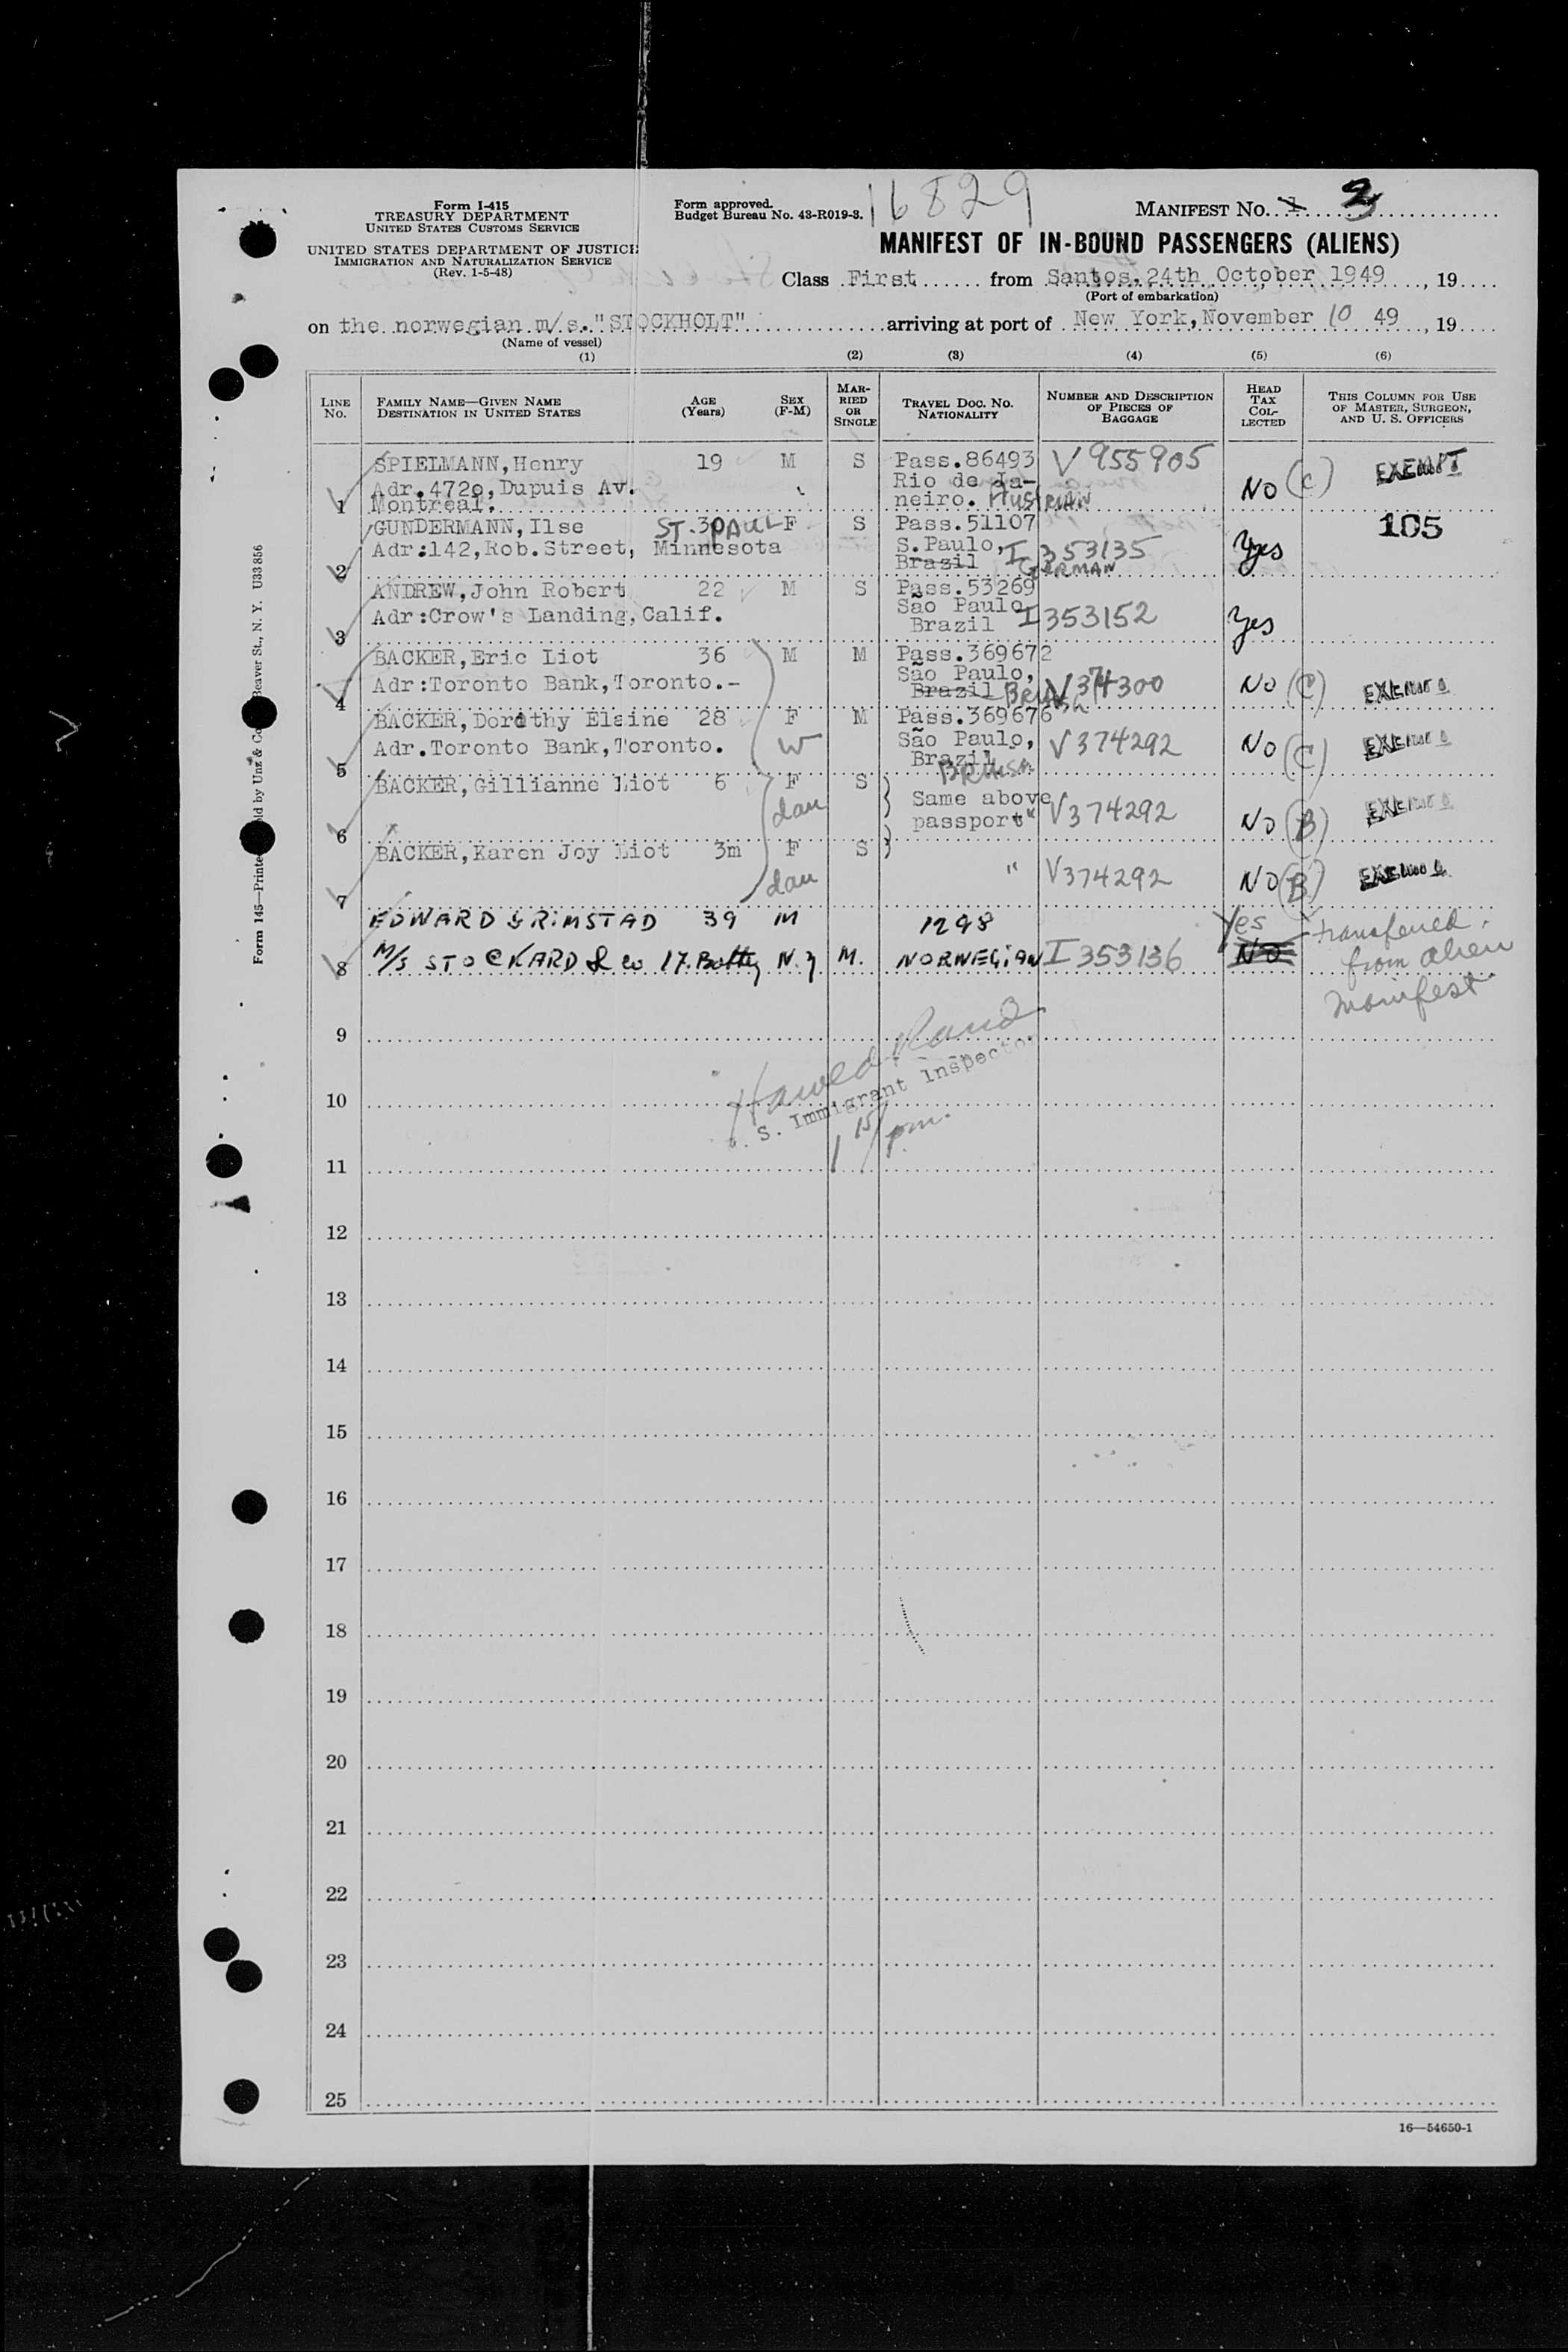 Form I-415
TREASURY DEPARTMENT
UNITED STATES CUSTOMS SERVICE
UNITED STATES DEPARTMENT OF JUSTICE
IMMIGRATION AND NATURALIZATION SERVICE
(Rev. 1-5-48)
Form approved.
Budget Bureau No. 43-R019-3.
16829
MANIFEST NO. 1 3
MANIFEST OF IN-BOUND PASSENGERS (ALIENS)
Class First from Santos, 24th October 1949, 19
(Port of embarkation)
on the norwegian m/s. "STOCKHOLT" arriving at port of New York, November 10 49, 19
(Name of vessel)
(1) (2) (3) (4) (5) (6)
LINE NO.
FAMILY NAME—GIVEN NAME
DESTINATION IN UNITED STATES
AGE (Years)
SEX (F-M)
MARRIED OR SINGLE
TRAVEL DOC. NO. NATIONALITY
NUMBER AND DESCRIPTION OF PIECES OF BAGGAGE
HEAD TAX COLLECTED
THIS COLUMN FOR USE OF MASTER, SURGEON, AND U. S. OFFICERS
SPIELMANN, Henry 19 M S Pass.86493 V955905
Adr.472o, Dupuis Av. Rio de Ja- No (C) EXEMPT
1 Montreal. neiro. AUSTRIAN
GUNDERMANN, Ilse ST. PAUL 30 F S Pass.51107 105
Adr:142, Rob. Street, Minnesota S.Paulo, I 353135 Yes
2 Brazil GERMAN
ANDREW, John Robert 22 M S Pass.53269
Adr:Crow's Landing, Calif. São Paulo I353152 Yes
3 Brazil
BACKER, Eric Liot 36 M M Pass.369672
Adr:Toronto Bank, Toronto.- São Paulo, V374300 No (C)
4 Brazil British
BACKER, Dorothy Elaine 28 F M Pass.369676
Adr.Toronto Bank, Toronto. W São Paulo, V374292 No (C)
5 Brazil British
BACKER, Gillianne Liot 6 F S
dau Same above V374292 No (B)
6 passport"
BACKER, Karen Joy Liot 3m F S
7 dau " V374292 No (B)
EDWARD GRIMSTAD 39 M 1298 Yes transferred
8 M/S STOCKARD & Co 17. Batty N.Y M. NORWEGIAN I353136 No from alien
manifest
9
Harold Rand
. S. Immigrant Inspector
10
1 15/pm.
11
12
13
14
15
16
17
18
19
20
21
22
23
24
25
16—54650-1
Form 145—Printed Sold by Unz & Co Beaver St., N. Y. U33856